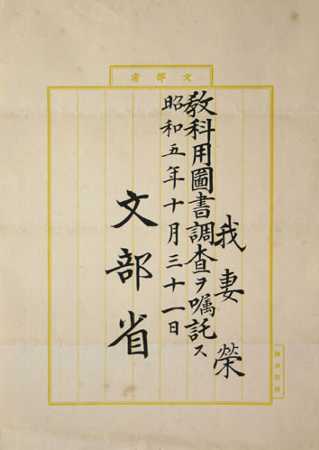 文部省
我妻榮
教科用圖書調査ヲ嘱託ス
昭和五年十月三十一日
文部省